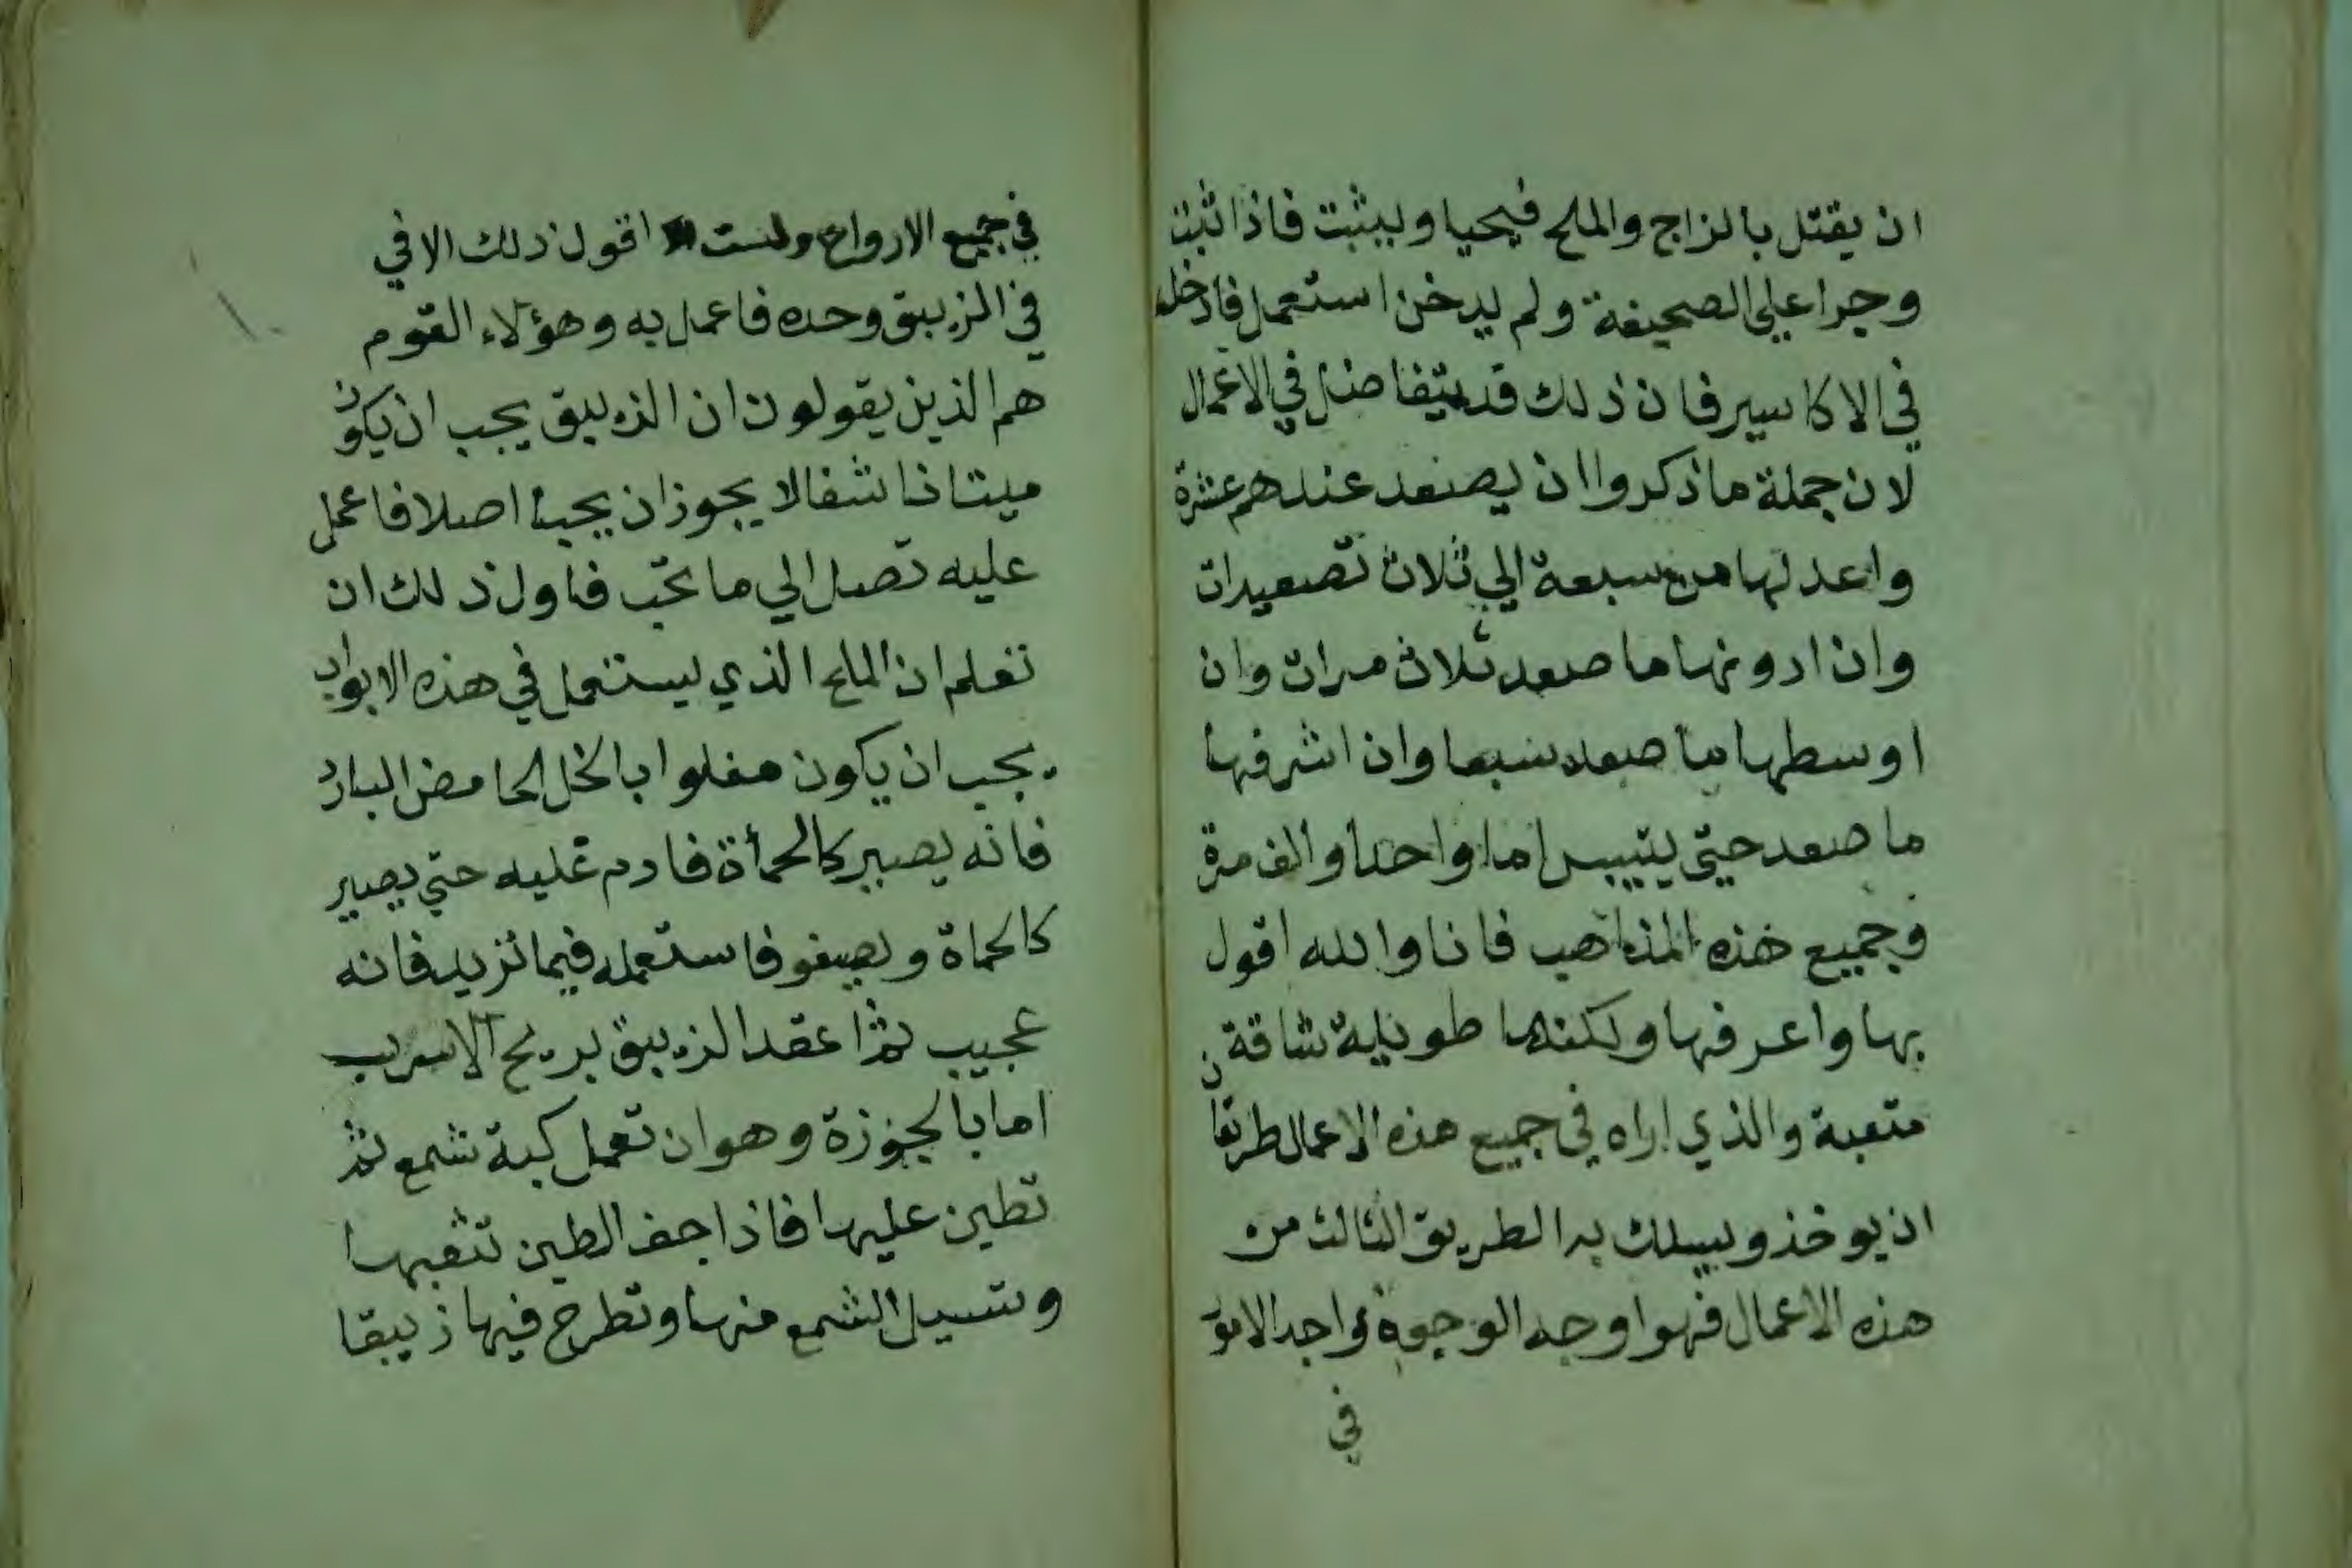 ان يقتل بالزاج والملح فيحيا ويثبت فاذا ثبت
وجرا علي الصحيفة ولم يدخن استعمل فادخل
في الاكاسير فان ذلك قد يتفاضل في الاعمال
لان جملة ما ذكروا ان يصعد عندهم عشرة
واعدلها من سبعة الي ثلاث تصعيدات
وان ادونها ما صعد ثلاث مرات وان
اوسطها ما صعد سبعا وان اشرفها
ما صعد حتي يتيبس اما واحدا والف مرة
وجميع هذه المذاهب فانا والله اقول
بها واعرفها ولكنها طويلة شاقة
متعبة والذي اراه في جميع هذه الاعمال طريقا
ان يوخذ ويسلك به الطريق الثالث من
هذه الاعمال فهو اوجه الوجوه واجد الامو
في
في جميع الارواح ولست اقول ذلك الا في
في الزيبق وحده فاعمل به وهؤلاء القوم
هم الذين يقولون ان الزيبق يجب ان يكون
ميتا ناشفا لا يجوز ان يجيء اصلا فاعمل
عليه تصل الي ما تحب فاول ذلك ان
تعلم ان الملح الذي يستعمل في هذه الابواب
يجب ان يكون مغلوا بالخل الحامض البارد
فانه يصير كالحمأة فادم عليه حتي يصير
كالحماة ويصفو فاستعمله فيما تريد فانه
عجيب ثم اعقد الزيبق بريح الاسرب
اما بالجوزة وهو ان تعمل كبة شمع ثم
تطين عليها فاذا جف الطين تثقبها
وتسيل الشمع منها وتطرح فيها زيبقا